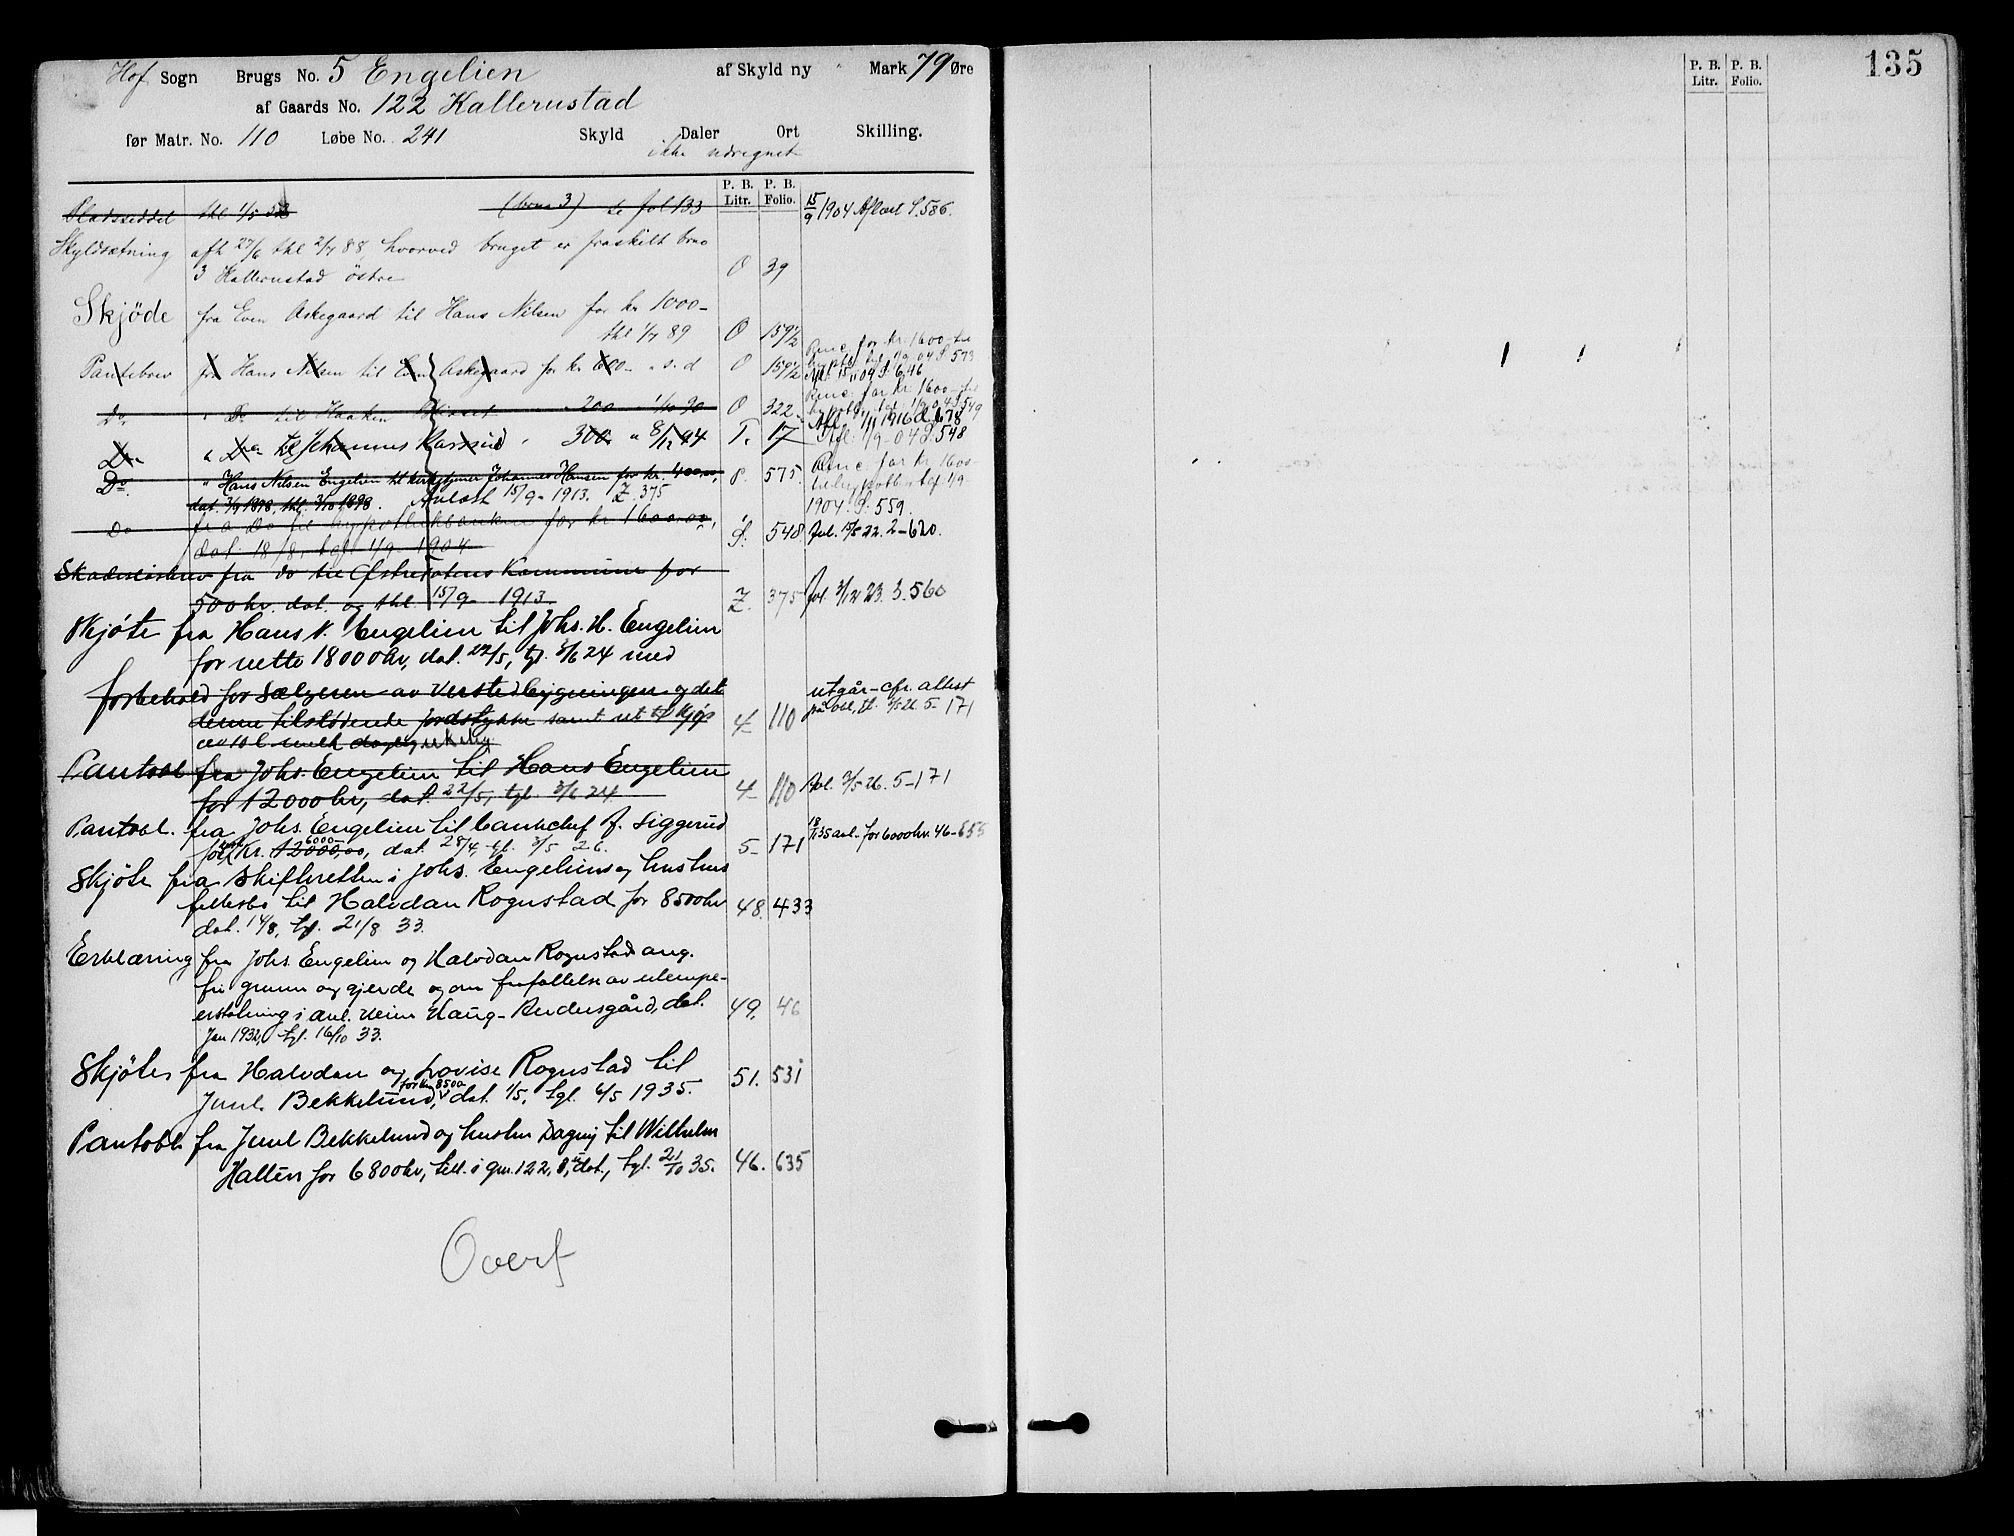 135
Hof Sogn Brugs No. 5 Engelien af Skyld ny " Mark 79 Øre
af Gaards No. 122 Kallerustad
før Matr. No. 110 Løbe No. 241 Skyld Daler Ort Skilling.
ikke udregnet
P. B. Litr. P. B. Folio.
P. B. Litr. P. B. Folio.
Pladsseddel thl 1/5 (brno 3) se fol 133 15/9 1904 Aflæst S. 586.
Skyldsætning afh 27/6 thl 2/7 88, hvorved bruget er fraskilt brno
3 Kallerustad östre O 39
Skjöde fra Even Askegaard til Hans Nilsen for kr 1000-
thl 1/7 89 O 159 1/2
Pantebrev fra Hans Nilsen til Even Askegaard for kr 600- s. d O 159 1/2
Do " Do til Haaken 200 " 1/10 90 O 322
Do " Do til Johannes " 300 " 8/12 94 T. 17 Afl. 1/9-04 S. 548
Do " Hans Nilsen Engelien til kirketjener Johannes Hansen for kr. 400.00, P. 575.
dat. 3/9 1898, thl. 3/10 1898. Avlæst 15/9-1913. Z. 375
Do fra Do til hypothekbanken for kr 1600.00, S. 548. Avl. 15/5 22. 2-620.
dat 18/8, tgl 1/9 1904
Skadesløsbrev fra do til Østre Totens Kommune for
500 kr. dat. og thl. 15/9-1913. Z. 375 Avl. 3/12 23. 3. 560
Skjøte fra Hans N. Engelien til Johs. H. Engelien
for nette 18000 kr, dat. 22/5, tgl. 3/6 24 med
forbehold for Sælgeren av Verstedbygningen og det utgår - cfr. attest
denne tilstøtende jordstykke samt ret til kjøp 4- 110 på obl., tl. 3/5 26. 5-171
av 10 l. melk daglig
Pantobl fra Johs. Engelien til Hans Engelien
for 12000 kr, dat. 22/5, tgl. 3/6 24 4- 110 Avl. 3/5 26. 5-171
Pantobl. fra Johs. Engelien til bankchef A. Siggerud 18/1 35 avl. for 6000 kr. 46-655
for Kr. 12000,00, 6000 dat. 28/4, tgl. 3/5 26. 5- 171
Skjøte fra Skifteretten i Johs. Engeliens og hustrus
fellesbo til Halvdan Rognstad for 8500 kr 48. 433
dat. 14/8, tgl. 21/8 33.
Erklæring fra Johs. Engelien og Halvdan Rognstad ang.
fri grunn og gjerde og om frafallelse av ulempe-
erstatning i anl. veien Haug - Rudersgård, dat. 49. 46
Jan 1932, tgl. 16/10 33.
Skjøte fra Halvdan og Lovise Rognstad til 51. 531
Juul Bekkelund, for kr 8500 dat. 1/5, tgl. 6/5 1935.
Pantobl. fra Juul Bekkelund og hustru Dagny til Wilhelm
Hallen for 6800 kr, till. i gnr. 122, 8, dat., tgl. 21/10 35. 46. 635
Overf